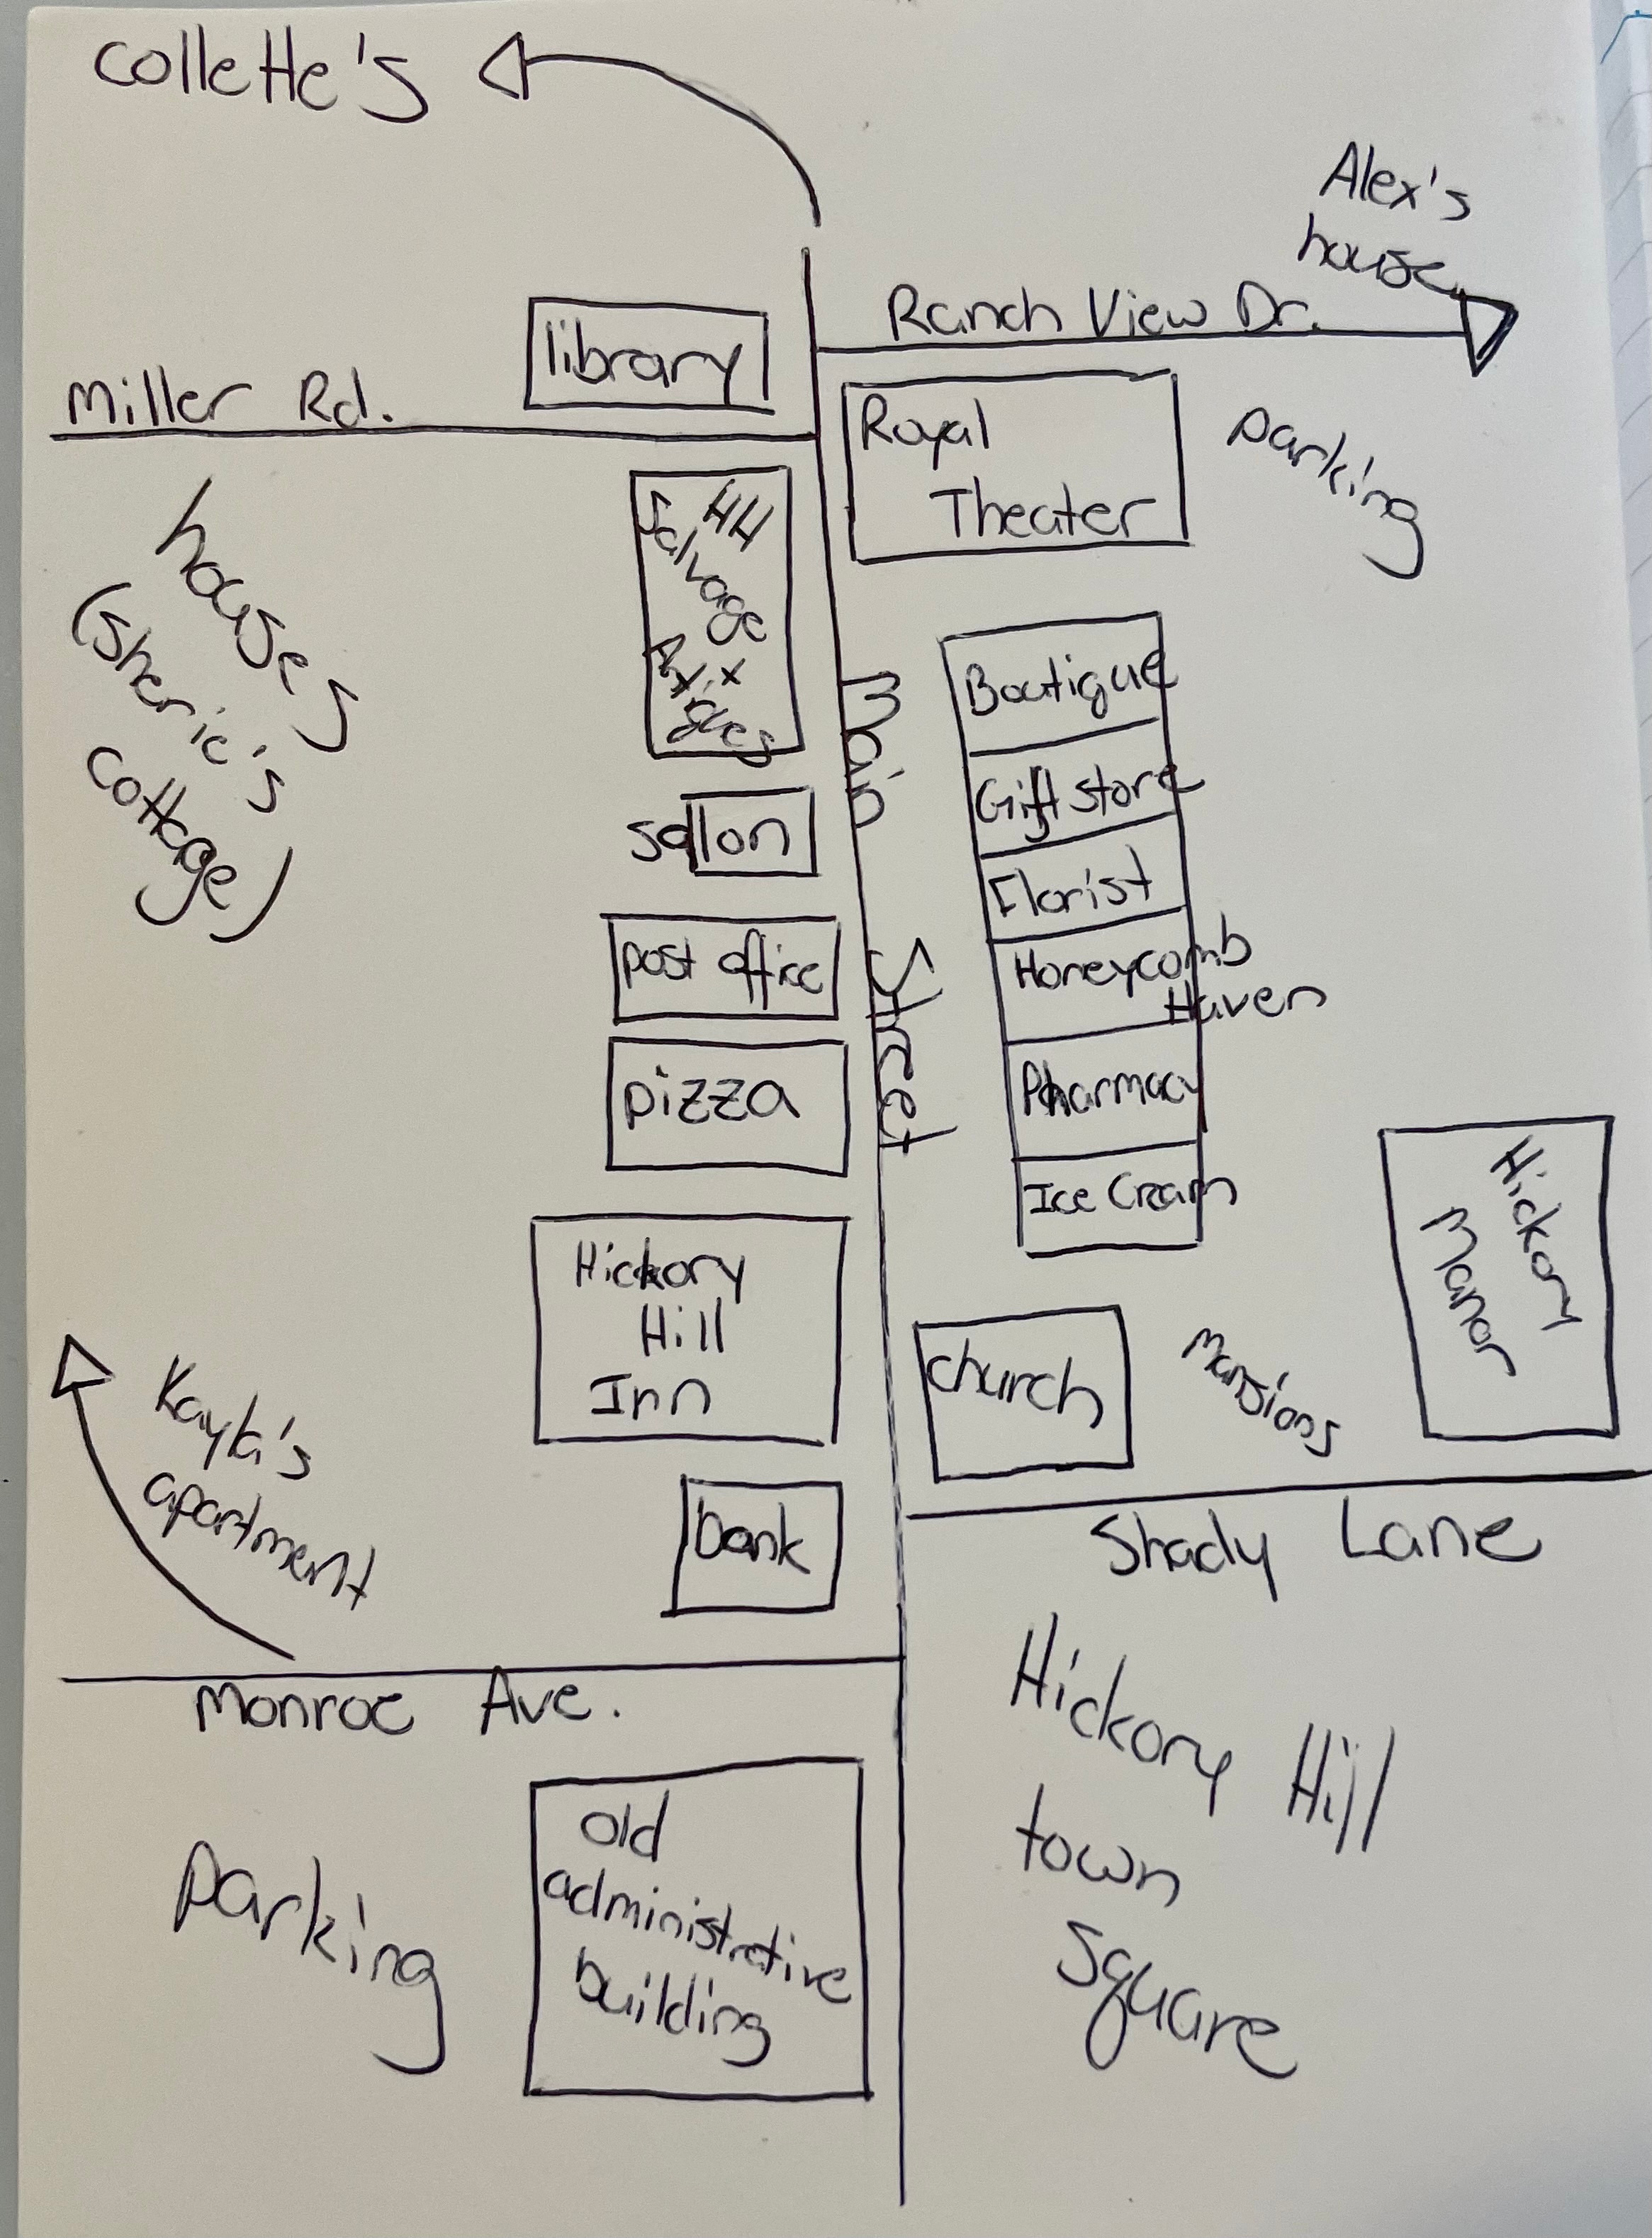 Collette's
Alex's
house
Ranch View Dr.
library
Miller Rd.
Royal
Theater
parking
HH
Salvage
+
Antiques
houses
(Sherie's
cottage)
Main
Street
Boutique
Gift store
Florist
Honeycomb
Haven
Pharmacy
Ice Cream
sallon
post office
pizza
Hickory
Hill
Inn
Hickory
Manor
church
Mansions
Kayla's
apartment
bank
Shady Lane
Monroe Ave.
Hickory Hill
town
Square
parking
old
administrative
building